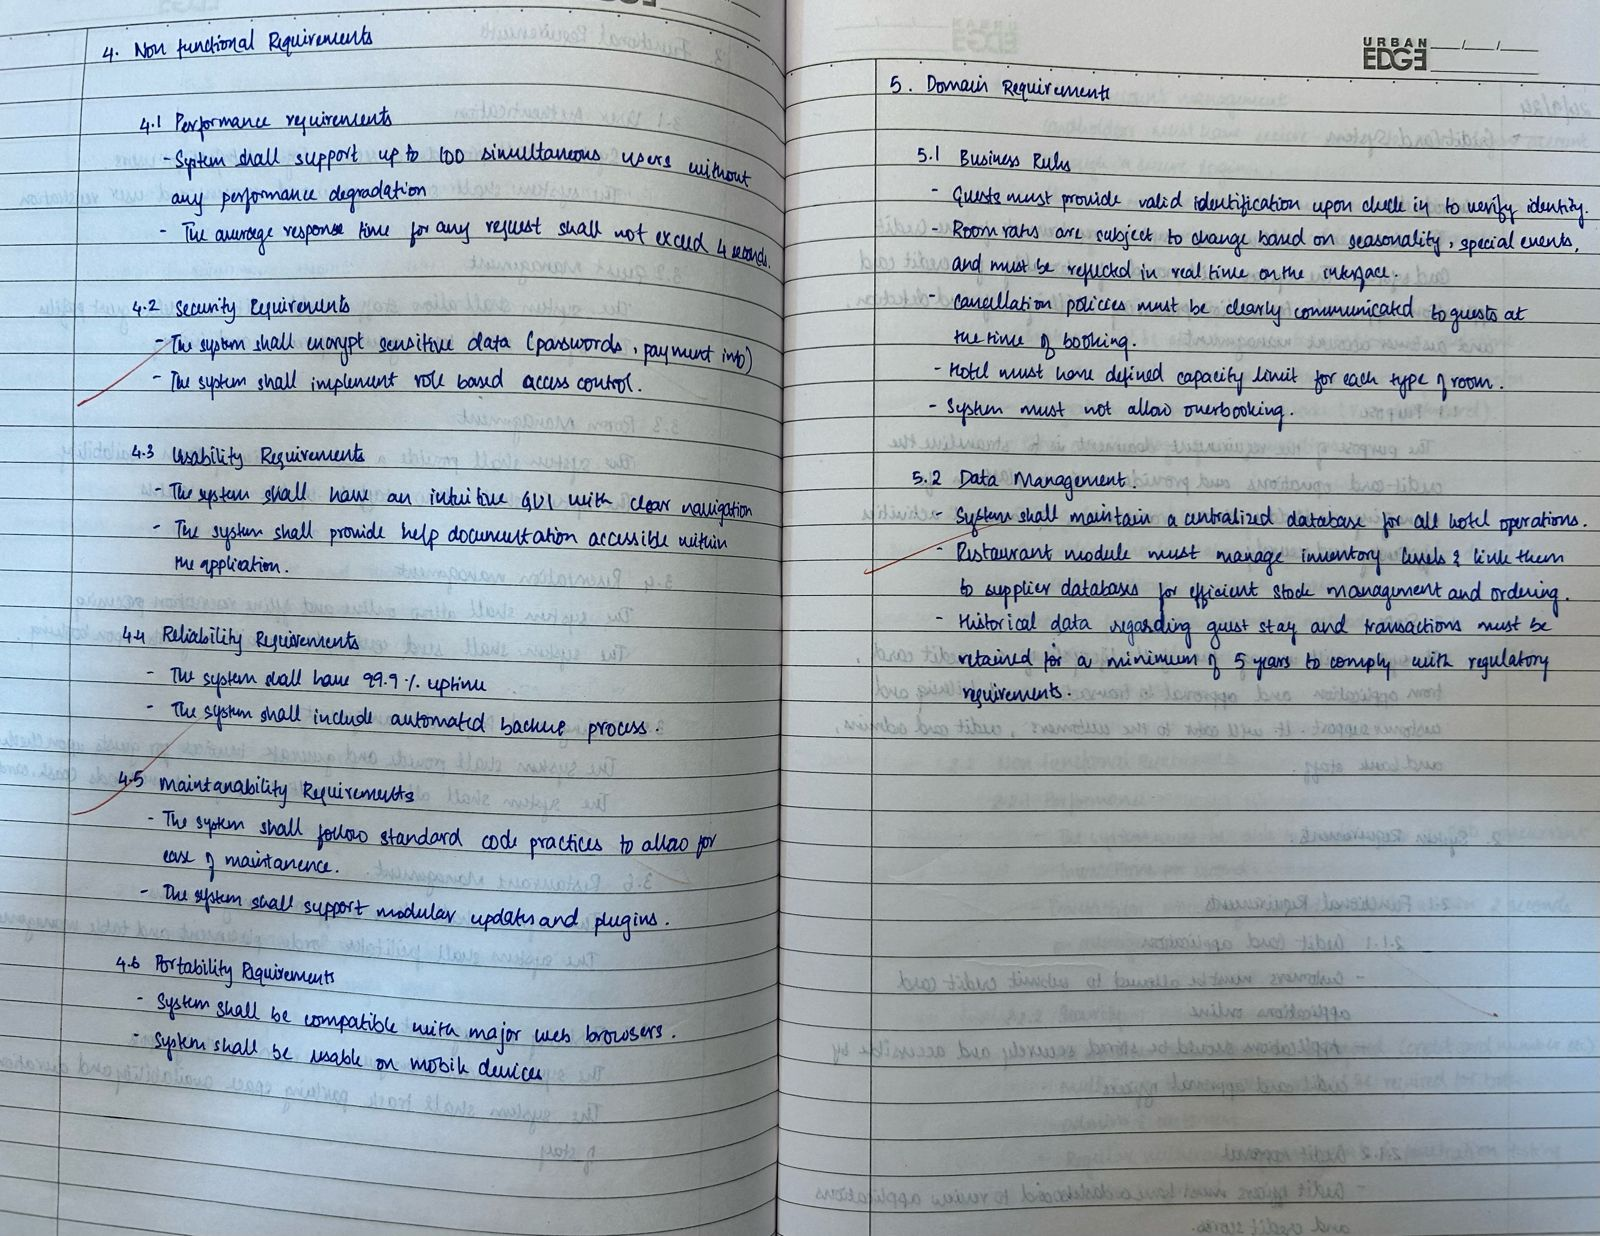 4. Non functional Requirements
4.1 Performance requirements
- System shall support up to 100 simultaneous users without
any performance degradation
- The average response time for any request shall not exceed 4 seconds.
4.2 Security Requirements
- The system shall encrypt sensitive data (passwords, payment info)
- The system shall implement role based access control.
4.3 Usability Requirements
- The system shall have an intuitive GUI with clear navigation
- The system shall provide help documentation accessible within
the application.
4.4 Reliability Requirements
- The system shall have 99.9% uptime
- The system shall include automated backup process.
4.5 Maintanability Requirements
- The system shall follow standard code practices to allow for
ease of maintanence.
- The system shall support modular updates and plugins.
4.6 Portability Requirements
- System shall be compatible with major web browsers.
- System shall be usable on mobile devices
URBAN
EDGE
5. Domain Requirements
5.1 Business Rules
- Guests must provide valid identification upon check in to verify identity.
- Room rates are subject to change based on seasonality, special events,
and must be reflected in real time on the interface.
- Cancellation policies must be clearly communicated to guests at
the time of booking.
- Hotel must have defined capacity limit for each type of room.
- System must not allow overbooking.
5.2 Data Management.
- System shall maintain a centralized database for all hotel operations.
- Restaurant module must manage inventory levels & link them
to supplier databases for efficient stock management and ordering.
- Historical data regarding guest stay and transactions must be
retained for a minimum of 5 years to comply with regulatory
requirements.